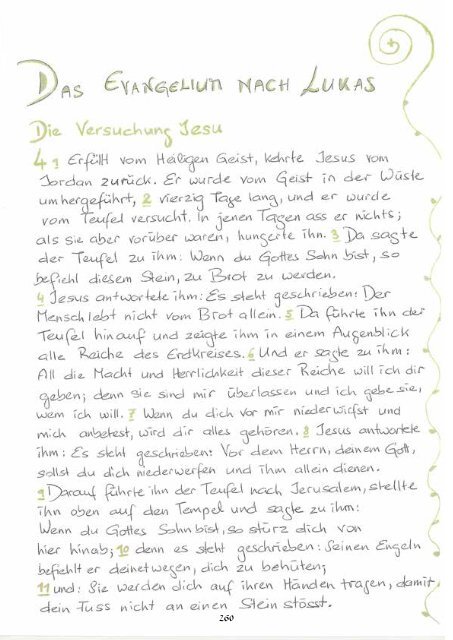 DAS EVANGELIUM NACH LUKAS
Die Versuchung Jesu
4 1 Erfüllt vom Heiligen Geist, kehrte Jesus vom
Jordan zurück. Er wurde vom Geist in der Wüste
umhergeführt, 2 vierzig Tage lang, und er wurde
vom Teufel versucht. In jenen Tagen ass er nichts;
als sie aber vorüber waren, hungerte ihn. 3 Da sagte
der Teufel zu ihm: Wenn du Gottes Sohn bist, so
befiehl diesem Stein, zu Brot zu werden.
4 Jesus antwortete ihm: Es steht geschrieben: Der
Mensch lebt nicht vom Brot allein. 5 Da führte ihn der
Teufel hinauf und zeigte ihm in einem Augenblick
alle Reiche des Erdkreises. 6 Und er sagte zu ihm:
All die Macht und Herrlichkeit dieser Reiche will ich dir
geben; denn sie sind mir überlassen und ich gebe sie,
wem ich will. 7 Wenn du dich vor mir niederwirfst und
mich anbetest, wird dir alles gehören. 8 Jesus antwortete
ihm: Es steht geschrieben: Vor dem Herrn, deinem Gott,
sollst du dich niederwerfen und ihm allein dienen.
9 Darauf führte ihn der Teufel nach Jerusalem, stellte
ihn oben auf den Tempel und sagte zu ihm:
Wenn du Gottes Sohn bist, so stürz dich von
hier hinab; 10 denn es steht geschrieben: Seinen Engeln
befiehlt er deinetwegen, dich zu behüten;
11 und: Sie werden dich auf ihren Händen tragen, damit
dein Fuss nicht an einen Stein stösst.
260